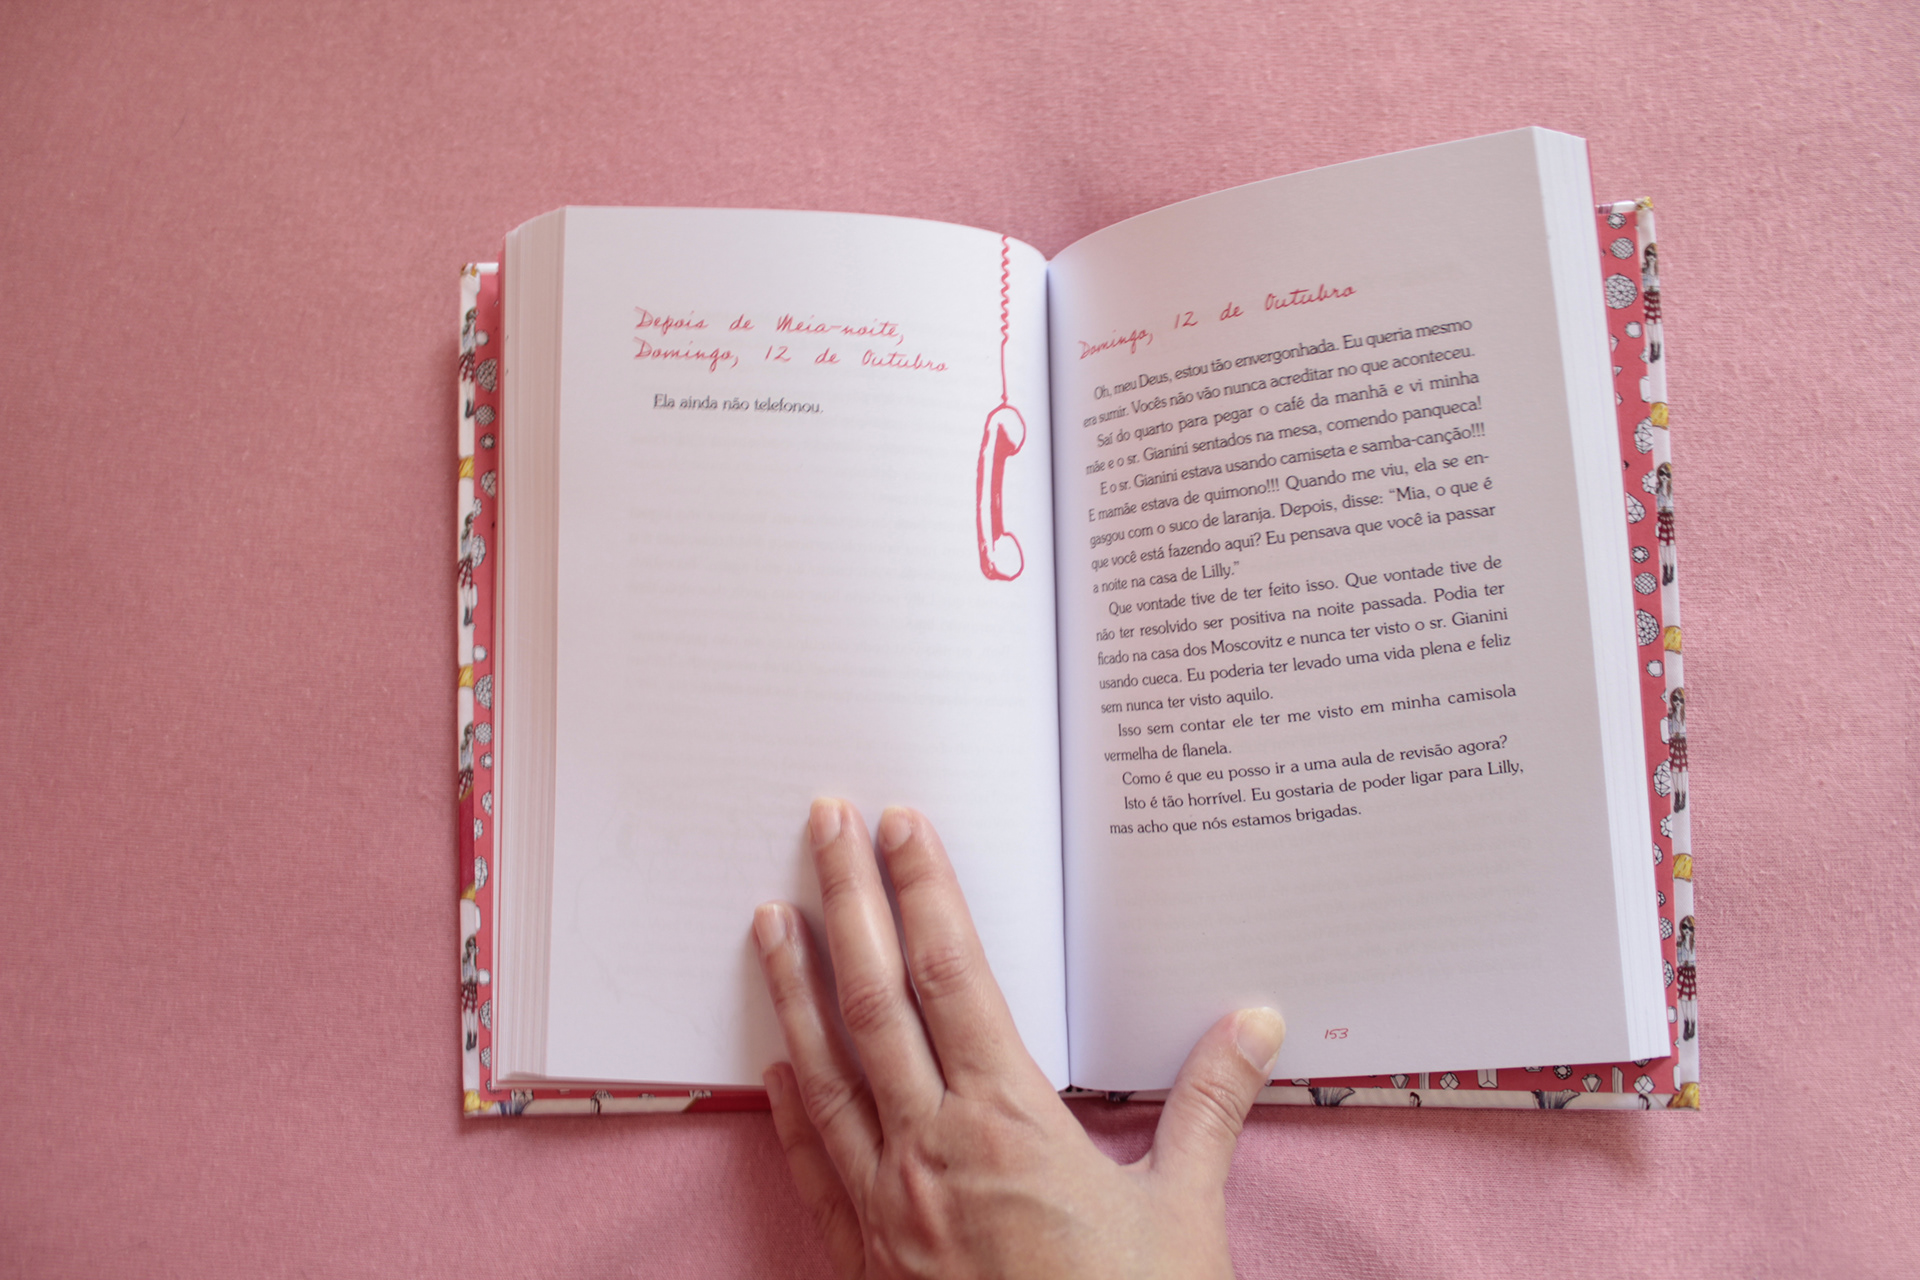 Depois de Meia-noite,
Domingo, 12 de Outubro
Ela ainda não telefonou.
Domingo, 12 de Outubro
Oh, meu Deus, estou tão envergonhada. Eu queria mesmo
era sumir. Vocês não vão nunca acreditar no que aconteceu.
Saí do quarto para pegar o café da manhã e vi minha
mãe e o sr. Gianini sentados na mesa, comendo panqueca!
E o sr. Gianini estava usando camiseta e samba-canção!!!
E mamãe estava de quimono!!! Quando me viu, ela se en-
gasgou com o suco de laranja. Depois, disse: “Mia, o que é
que você está fazendo aqui? Eu pensava que você ia passar
a noite na casa de Lilly.”
Que vontade tive de ter feito isso. Que vontade tive de
não ter resolvido ser positiva na noite passada. Podia ter
ficado na casa dos Moscovitz e nunca ter visto o sr. Gianini
usando cueca. Eu poderia ter levado uma vida plena e feliz
sem nunca ter visto aquilo.
Isso sem contar ele ter me visto em minha camisola
vermelha de flanela.
Como é que eu posso ir a uma aula de revisão agora?
Isto é tão horrível. Eu gostaria de poder ligar para Lilly,
mas acho que nós estamos brigadas.
153